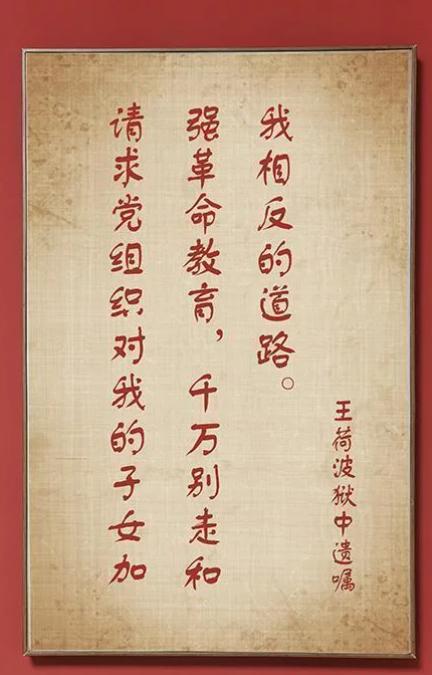 请求党组织对我的子女加
强革命教育，千万别走和
我相反的道路。
王荷波狱中遗嘱